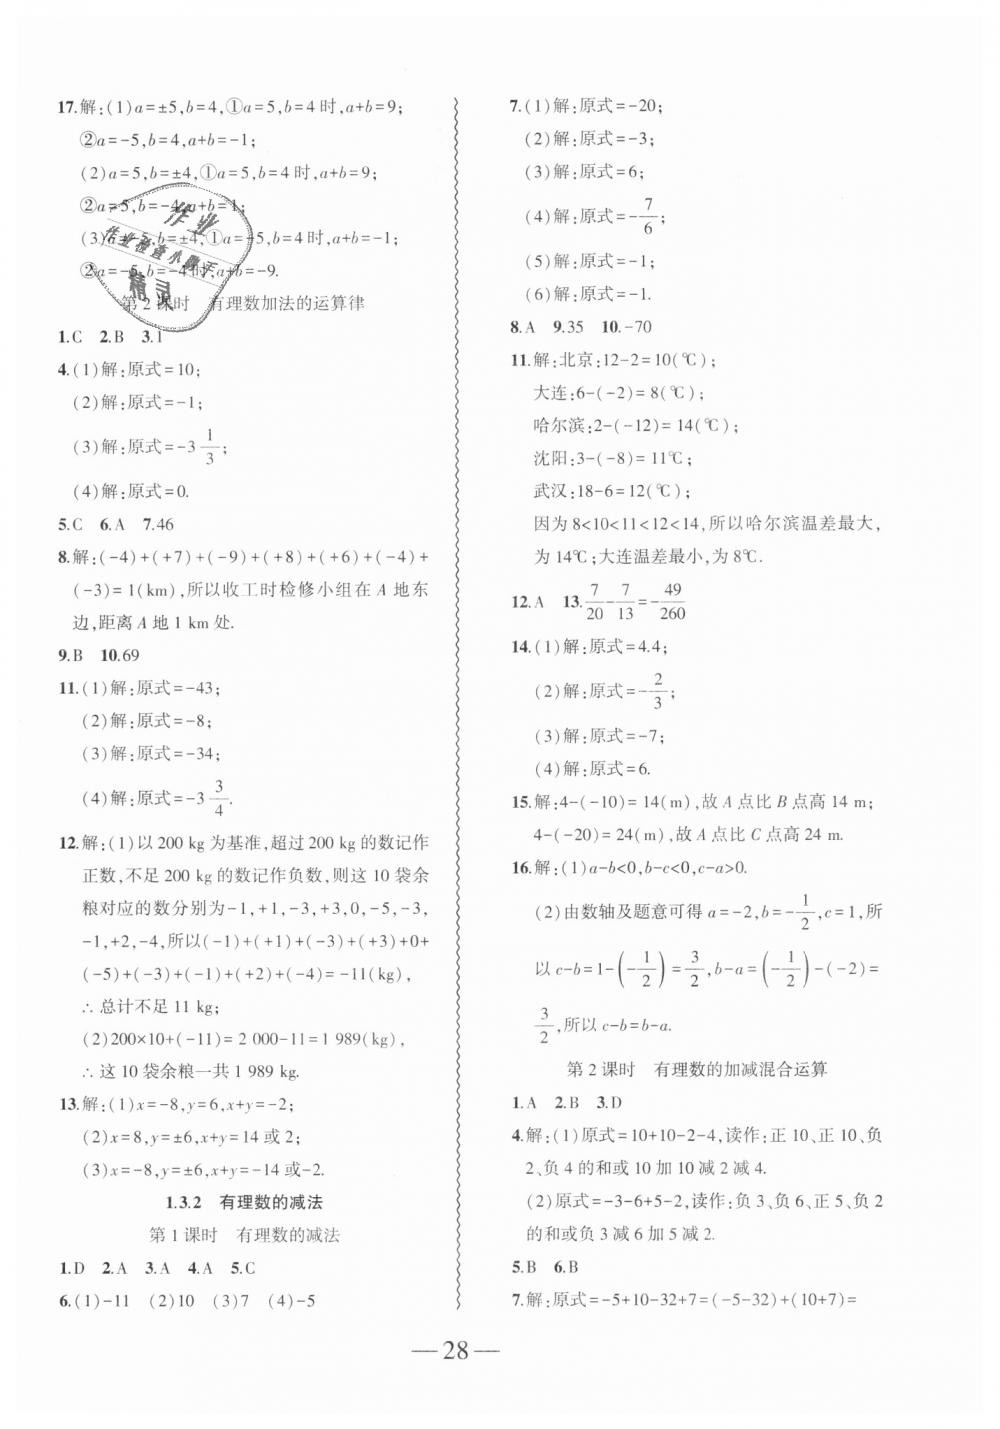 17.解:(1)a=±5,b=4,①a=5,b=4时,a+b=9;
②a=-5,b=4,a+b=-1;
(2)a=5,b=±4,①a=5,b=4时,a+b=9;
②a=5,b=-4,a+b=1;
(3)a=-5,b=±4,①a=-5,b=4时,a+b=-1;
②a=-5,b=-4时,a+b=-9.
第2课时 有理数加法的运算律
1.C 2.B 3.1
4.(1)解:原式=10;
(2)解:原式=-1;
(3)解:原式=-3 1/3;
(4)解:原式=0.
5.C 6.A 7.46
8.解:(-4)+(+7)+(-9)+(+8)+(+6)+(-4)+
(-3)=1(km),所以收工时检修小组在A地东
边,距离A地1 km处.
9.B 10.69
11.(1)解:原式=-43;
(2)解:原式=-8;
(3)解:原式=-34;
(4)解:原式=-3 3/4.
12.解:(1)以200 kg为基准,超过200 kg的数记作
正数,不足200 kg的数记作负数,则这10袋余
粮对应的数分别为-1,+1,-3,+3,0,-5,-3,
-1,+2,-4,所以(-1)+(+1)+(-3)+(+3)+0+
(-5)+(-3)+(-1)+(+2)+(-4)=-11(kg),
∴总计不足11 kg;
(2)200×10+(-11)=2 000-11=1 989(kg),
∴这10袋余粮一共1 989 kg.
13.解:(1)x=-8,y=6,x+y=-2;
(2)x=8,y=±6,x+y=14或2;
(3)x=-8,y=±6,x+y=-14或-2.
1.3.2 有理数的减法
第1课时 有理数的减法
1.D 2.A 3.A 4.A 5.C
6.(1)-11 (2)10 (3)7 (4)-5
7.(1)解:原式=-20;
(2)解:原式=-3;
(3)解:原式=6;
(4)解:原式=-7/6;
(5)解:原式=-1;
(6)解:原式=-1.
8.A 9.35 10.-70
11.解:北京:12-2=10(℃);
大连:6-(-2)=8(℃);
哈尔滨:2-(-12)=14(℃);
沈阳:3-(-8)=11℃;
武汉:18-6=12(℃);
因为8<10<11<12<14,所以哈尔滨温差最大,
为14℃;大连温差最小,为8℃.
12.A 13.7/20-7/13=-49/260
14.(1)解:原式=4.4;
(2)解:原式=-2/3;
(3)解:原式=-7;
(4)解:原式=6.
15.解:4-(-10)=14(m),故A点比B点高14 m;
4-(-20)=24(m),故A点比C点高24 m.
16.解:(1)a-b<0,b-c<0,c-a>0.
(2)由数轴及题意可得a=-2,b=-1/2,c=1,所
以c-b=1-(-1/2)=3/2,b-a=(-1/2)-(-2)=
3/2,所以c-b=b-a.
第2课时 有理数的加减混合运算
1.A 2.B 3.D
4.解:(1)原式=10+10-2-4,读作:正10、正10、负
2、负4的和或10加10减2减4.
(2)原式=-3-6+5-2,读作:负3、负6、正5、负2
的和或负3减6加5减2.
5.B 6.B
7.解:原式=-5+10-32+7=(-5-32)+(10+7)=
— 28 —
作业
作业检查小助手
精灵